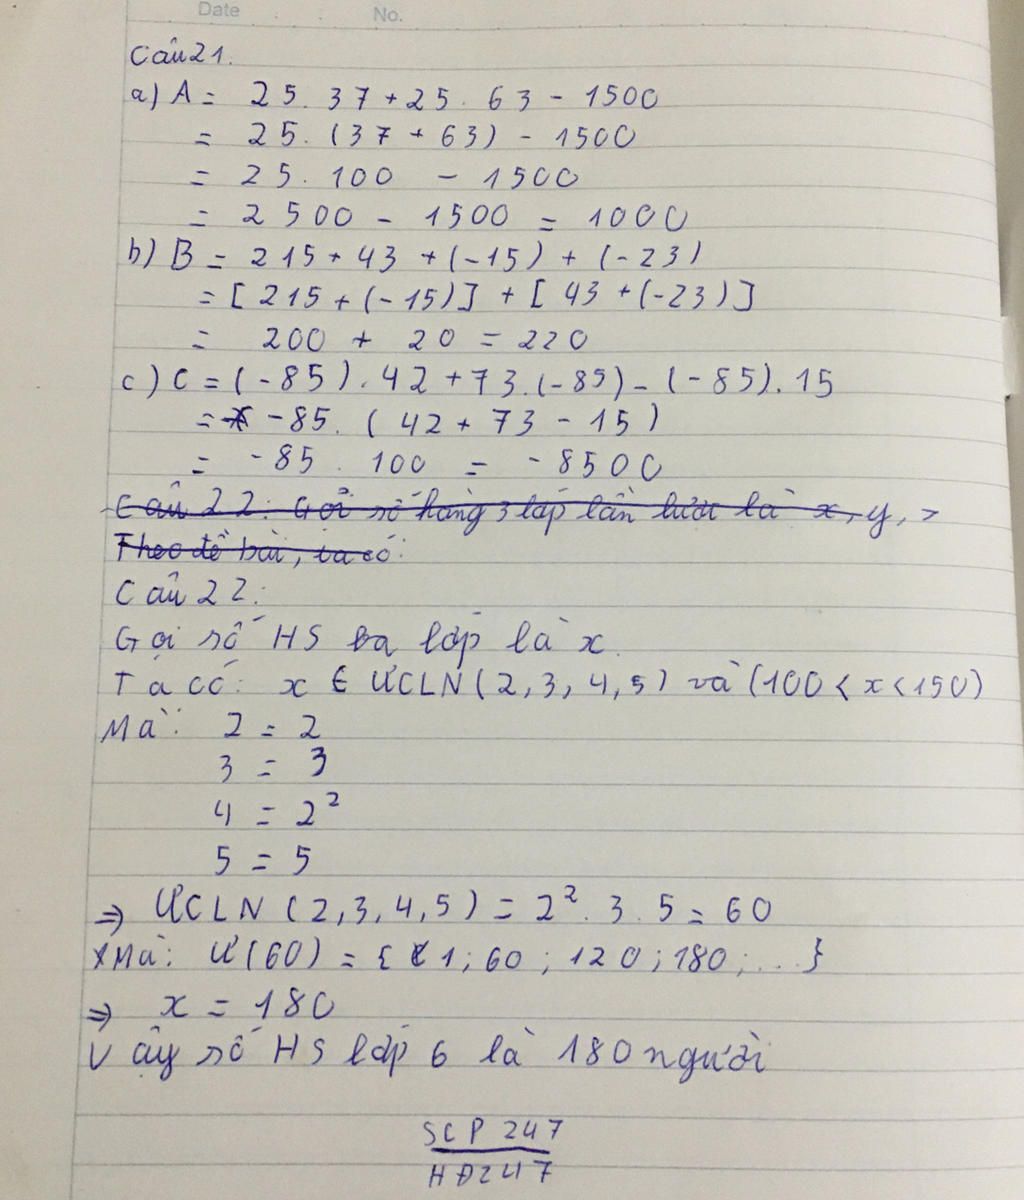 Date No.
Câu 21.
a) A = 25.37 + 25.63 - 1500
= 25.(37 + 63) - 1500
= 25.100 - 1500
= 2500 - 1500 = 1000
b) B = 215 + 43 + (-15) + (-23)
= [215 + (-15)] + [43 + (-23)]
= 200 + 20 = 220
c) C = (-85).42 + 73.(-85) - (-85).15
= -85.(42 + 73 - 15)
= -85.100 = -8500
Câu 22: Gọi số hàng 3 lớp lần lượt là x, y, >
Theo đề bài, ta có:
Câu 22:
Gọi số HS ba lớp là x.
Ta có: x ∈ ƯCLN(2,3,4,5) và (100 < x < 150)
Mà: 2 = 2
3 = 3
4 = 2²
5 = 5
⇒ ƯCLN(2,3,4,5) = 2².3.5 = 60
Mà: Ư(60) = {1; 60; 120; 180; ...}
⇒ x = 180
Vậy số HS lớp 6 là 180 người
SCP 247
HĐ247